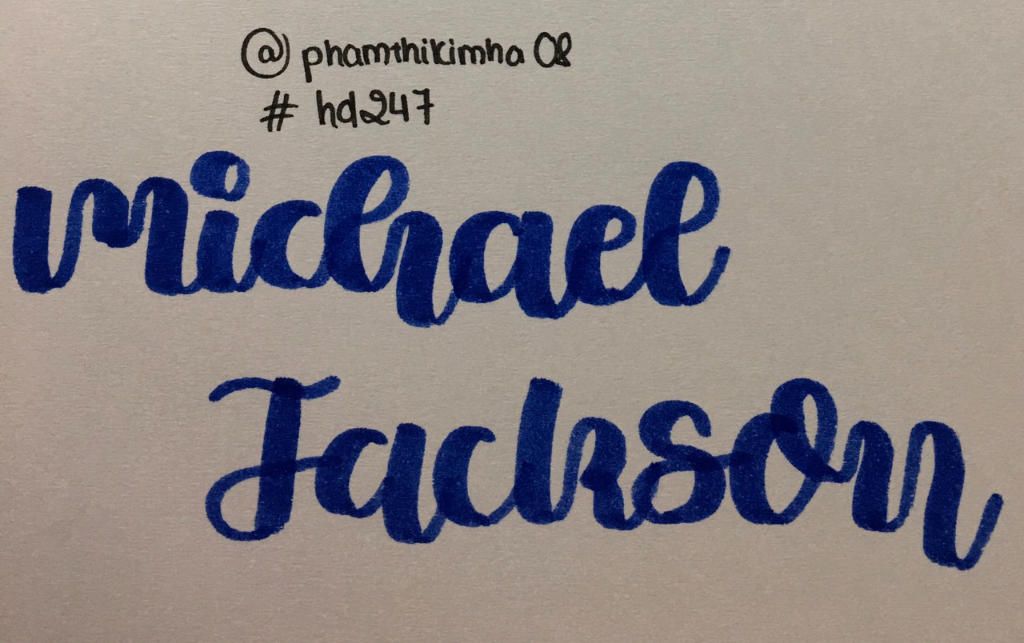 @phamthikimha08
# hd247
michael
Jackson